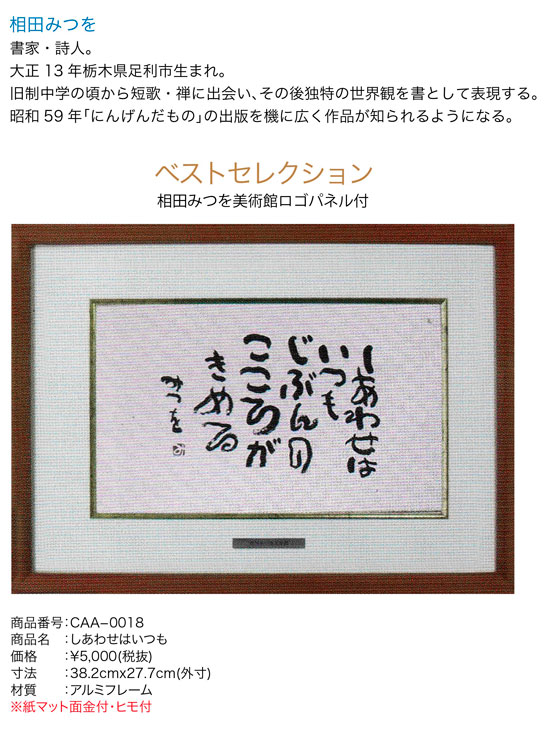 相田みつを
書家・詩人。
大正13年栃木県足利市生まれ。
旧制中学の頃から短歌・禅に出会い、その後独特の世界観を書として表現する。
昭和59年「にんげんだもの」の出版を機に広く作品が知られるようになる。
ベストセレクション
相田みつを美術館ロゴパネル付
しあわせは
いつも
じぶんの
こころが
きめる
みつを
商品番号：CAA−0018
商品名　：しあわせはいつも
価格　　：¥5,000(税抜)
寸法　　：38.2cmx27.7cm(外寸)
材質　　：アルミフレーム
※紙マット面金付・ヒモ付